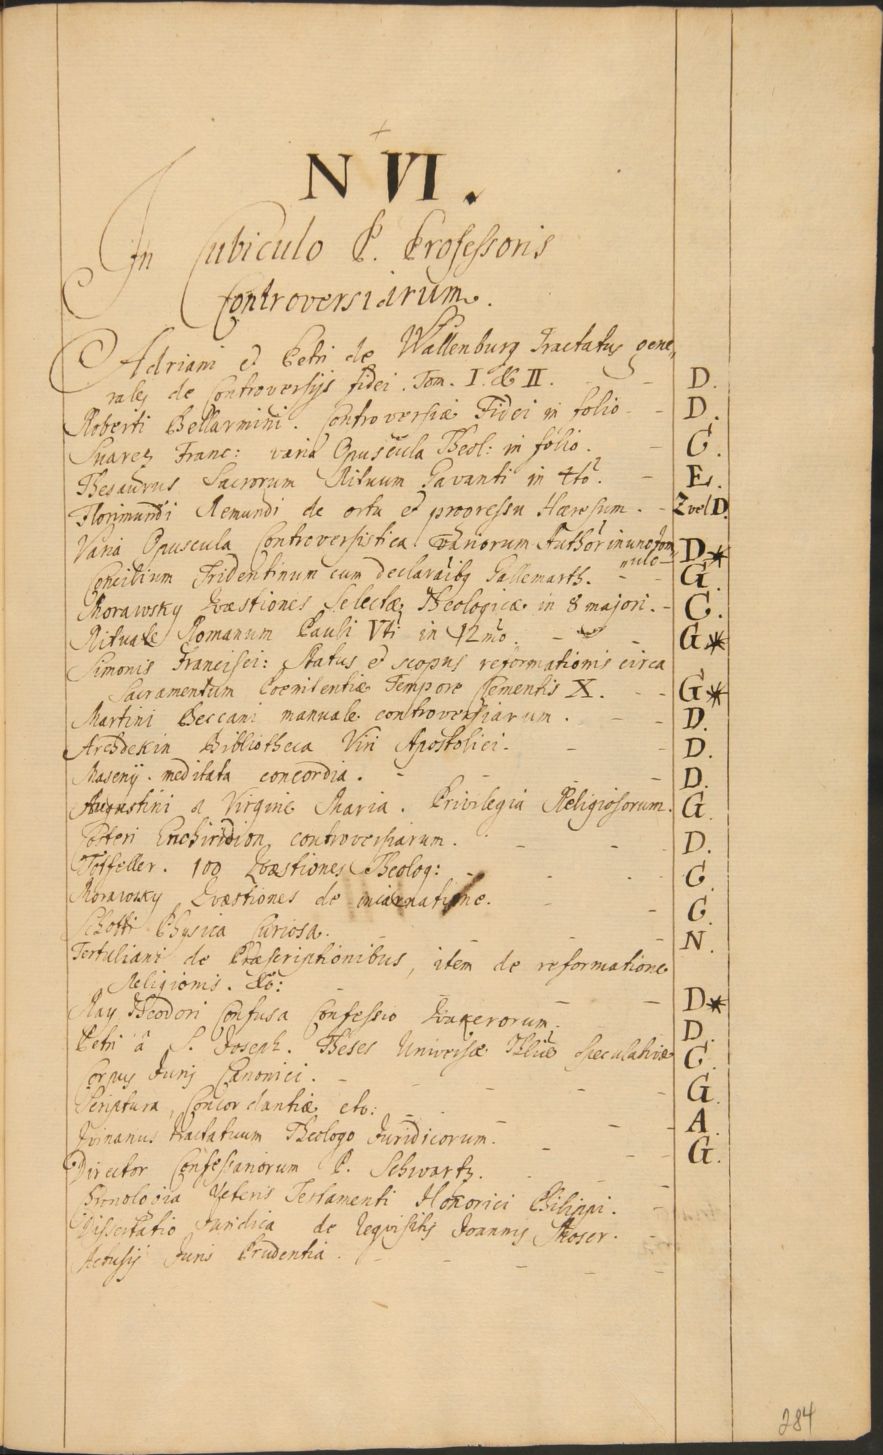 N VI.
In Cubiculo P. Professoris
Controversiarum.
Adriani et Petri de Wallenburg Tractatus gene,
rales de Controversijs fidei. Tom. I. & II. - D.
Roberti Bellarmini. Controversiæ Fidei in folio - D.
Suarez Franc: varia Opuscula Theol: in folio. - C.
Thesaurus Sacrorum Rituum Gavanti in 4to. - E.
Florimundi Remundi de ortu et progressu Hæresum. - Z vel D.
Varia Opuscula Controversistica variorum Author in uno Tom D*
Concilium Tridentinum cum declaraibq Gallemarth. - - G.
Morawsky Quæstiones Selectæ Theologicæ in 8 majori. - C.
Rituale Romanum Pauli Vti in 12mo. - - G*
Simonis Francisci: Status et scopus reformationis circa
Sacramentum Poenitentiæ Tempore Clementis X. - - G*
Martini Beccani manuale controversiarum. - - D.
Archdekin Bibliotheca Viri Apostolici. - - D.
Masenij. meditata concordia. - - - D.
Augustini a Virgine Maria. Privilegia Religiosorum. G.
Enchiridion controversiarum. - - - D.
100 Quæstiones Theolog: - - - C.
Morawsky Quæstiones de incarnatione. - - C.
Schotti Physica Curiosa. - - - - N.
Tertuliani de Præscriptionibus, item de reformatione
Religionis. &c: - - - D*
May Theodori Confusa Confessio Quakerorum. D.
Petri â S. Joseph. Theses Universæ Speculativæ C.
Corpus Juris Canonici. - - - - G.
Scriptura, Concordantiæ etc: - - - A.
Tractatuum Theologo Juridicorum. - - - G.
Director Confessariorum P. Schwartz. -
Chronologia Veteris Testamenti Honorici Philippi. -
Dissertatio Juridica de requisitis Joannis -
Juris Prudentia. - - - -
284